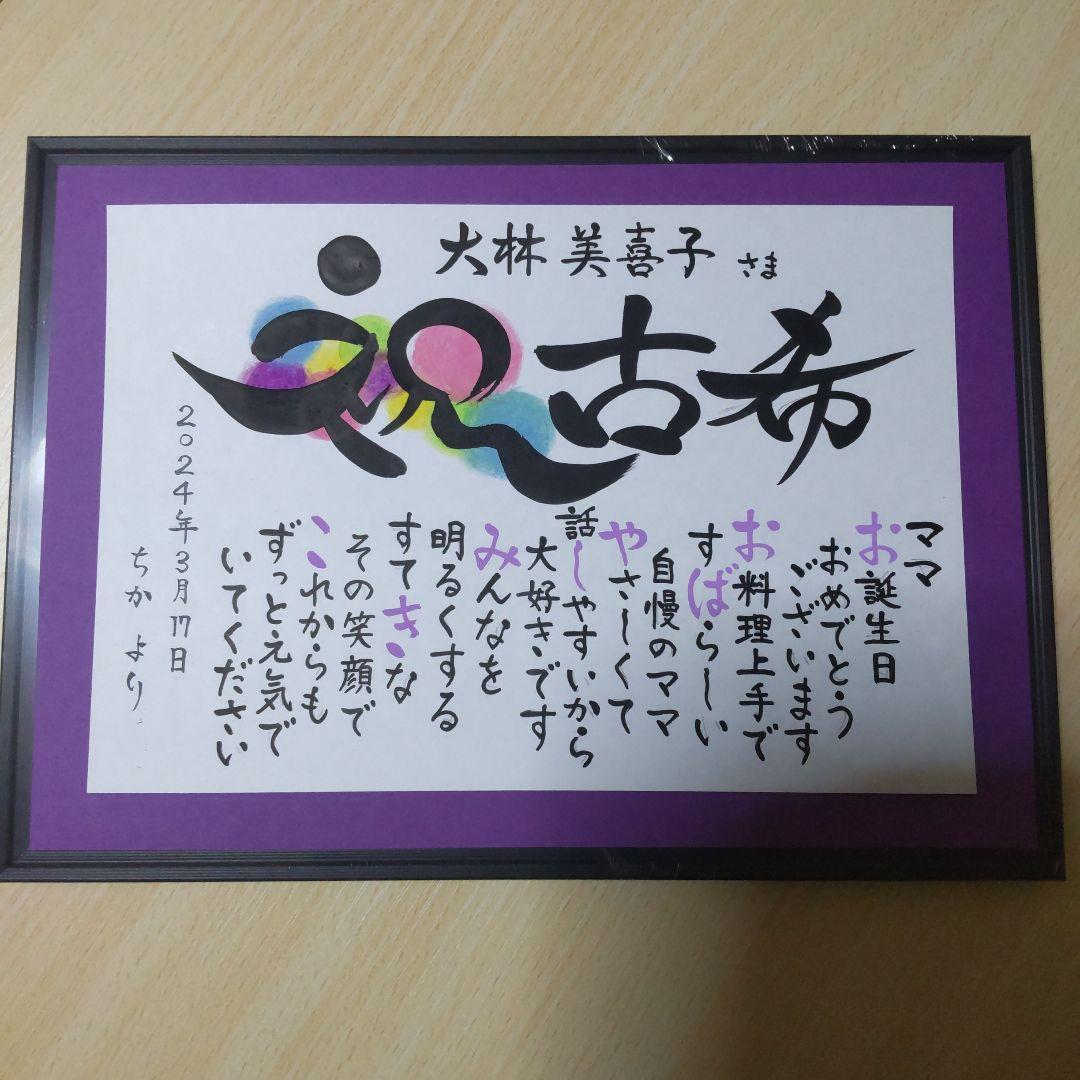 大林 美喜子 さま
祝古希
ママ
お誕生日
おめでとう
ございます
お料理上手で
すばらしい
自慢のママ
やさしくて
話しやすいから
大好きです
みんなを
明るくする
すてきな
その笑顔で
これからも
ずっと元気で
いてください
2024年3月17日
ちか より